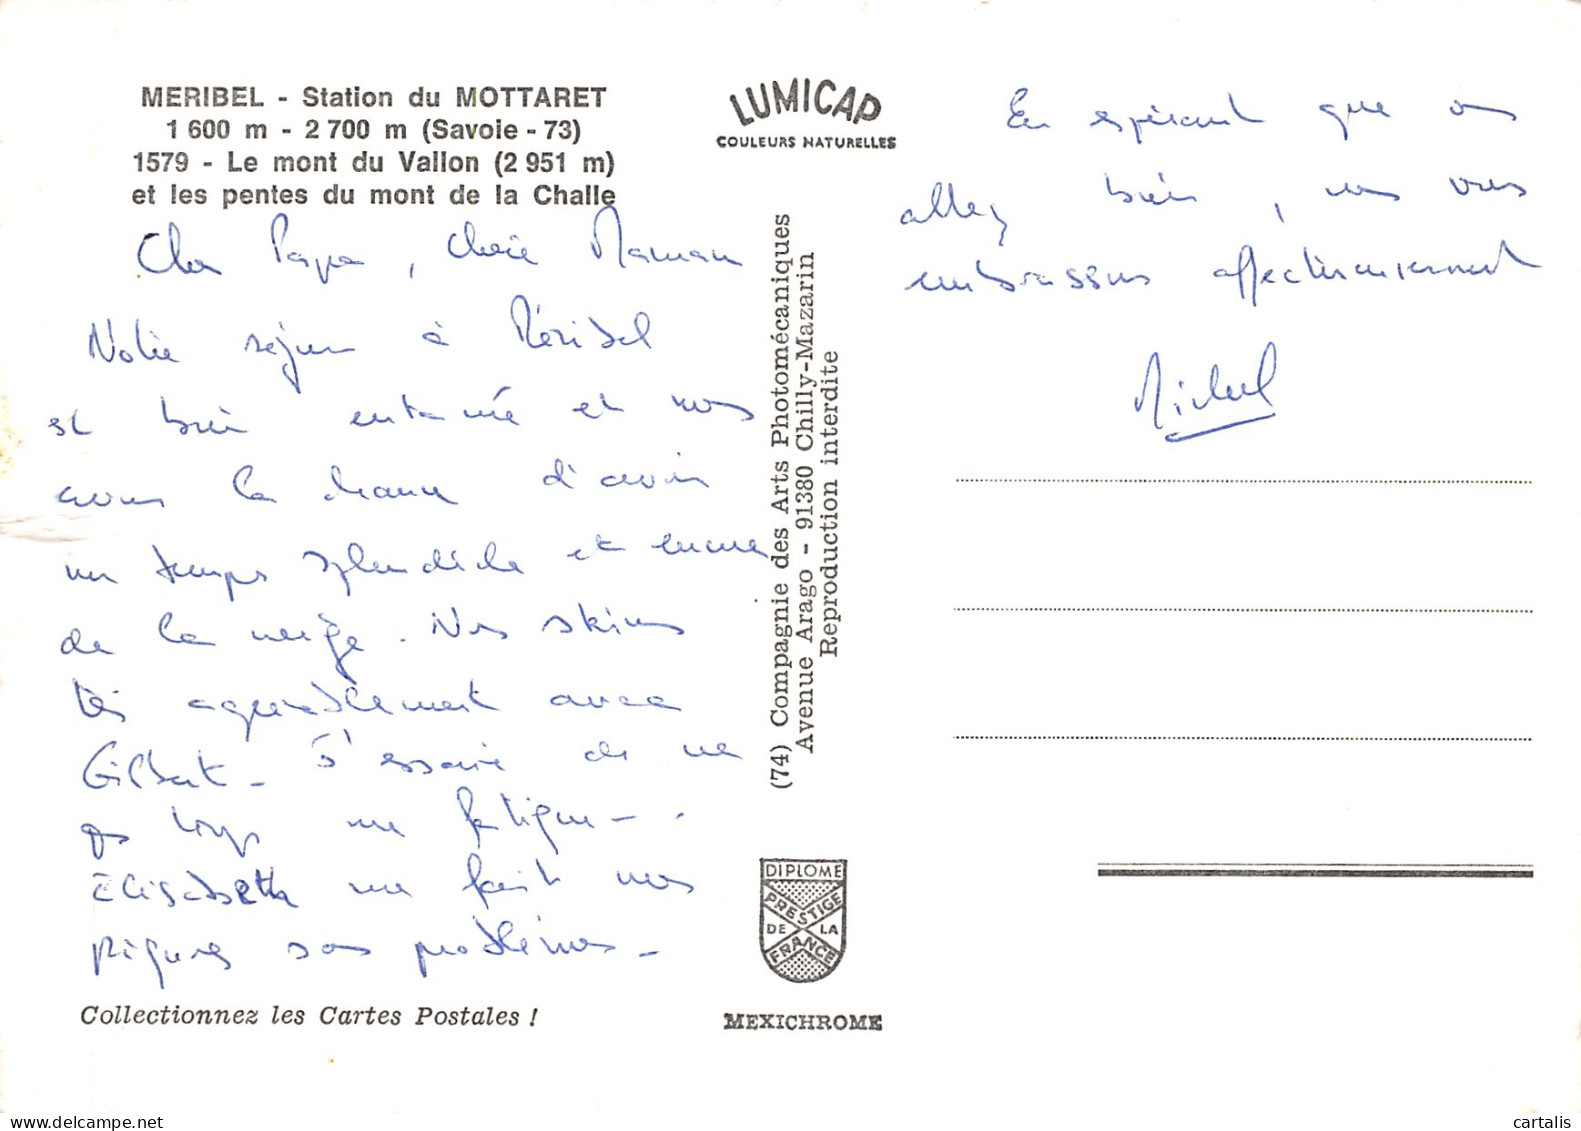 MERIBEL - Station du MOTTARET
1 600 m - 2 700 m (Savoie - 73)
1579 - Le mont du Vallon (2 951 m)
et les pentes du mont de la Challe
Cher Papa, chère Maman
Notre séjour à Méribel
est bien entamé et nous
avons la chance d'avoir
un temps splendide et encore
de la neige. Nous skions
très agréablement avec
Gilbert - J'essaie de ne
pas trop me fatiguer - .
Elisabeth me fait mes
piqures sans problèmes -
Collectionnez les Cartes Postales !
LUMICAP
COULEURS NATURELLES
(74) Compagnie des Arts Photomécaniques
Avenue Arago - 91380 Chilly-Mazarin
Reproduction interdite
DIPLOME
PRESTIGE
DE LA
FRANCE
MEXICHROME
En espérant que vous
allez bien, nous vous
embrassons affectueusement
Michel
cartalis.com